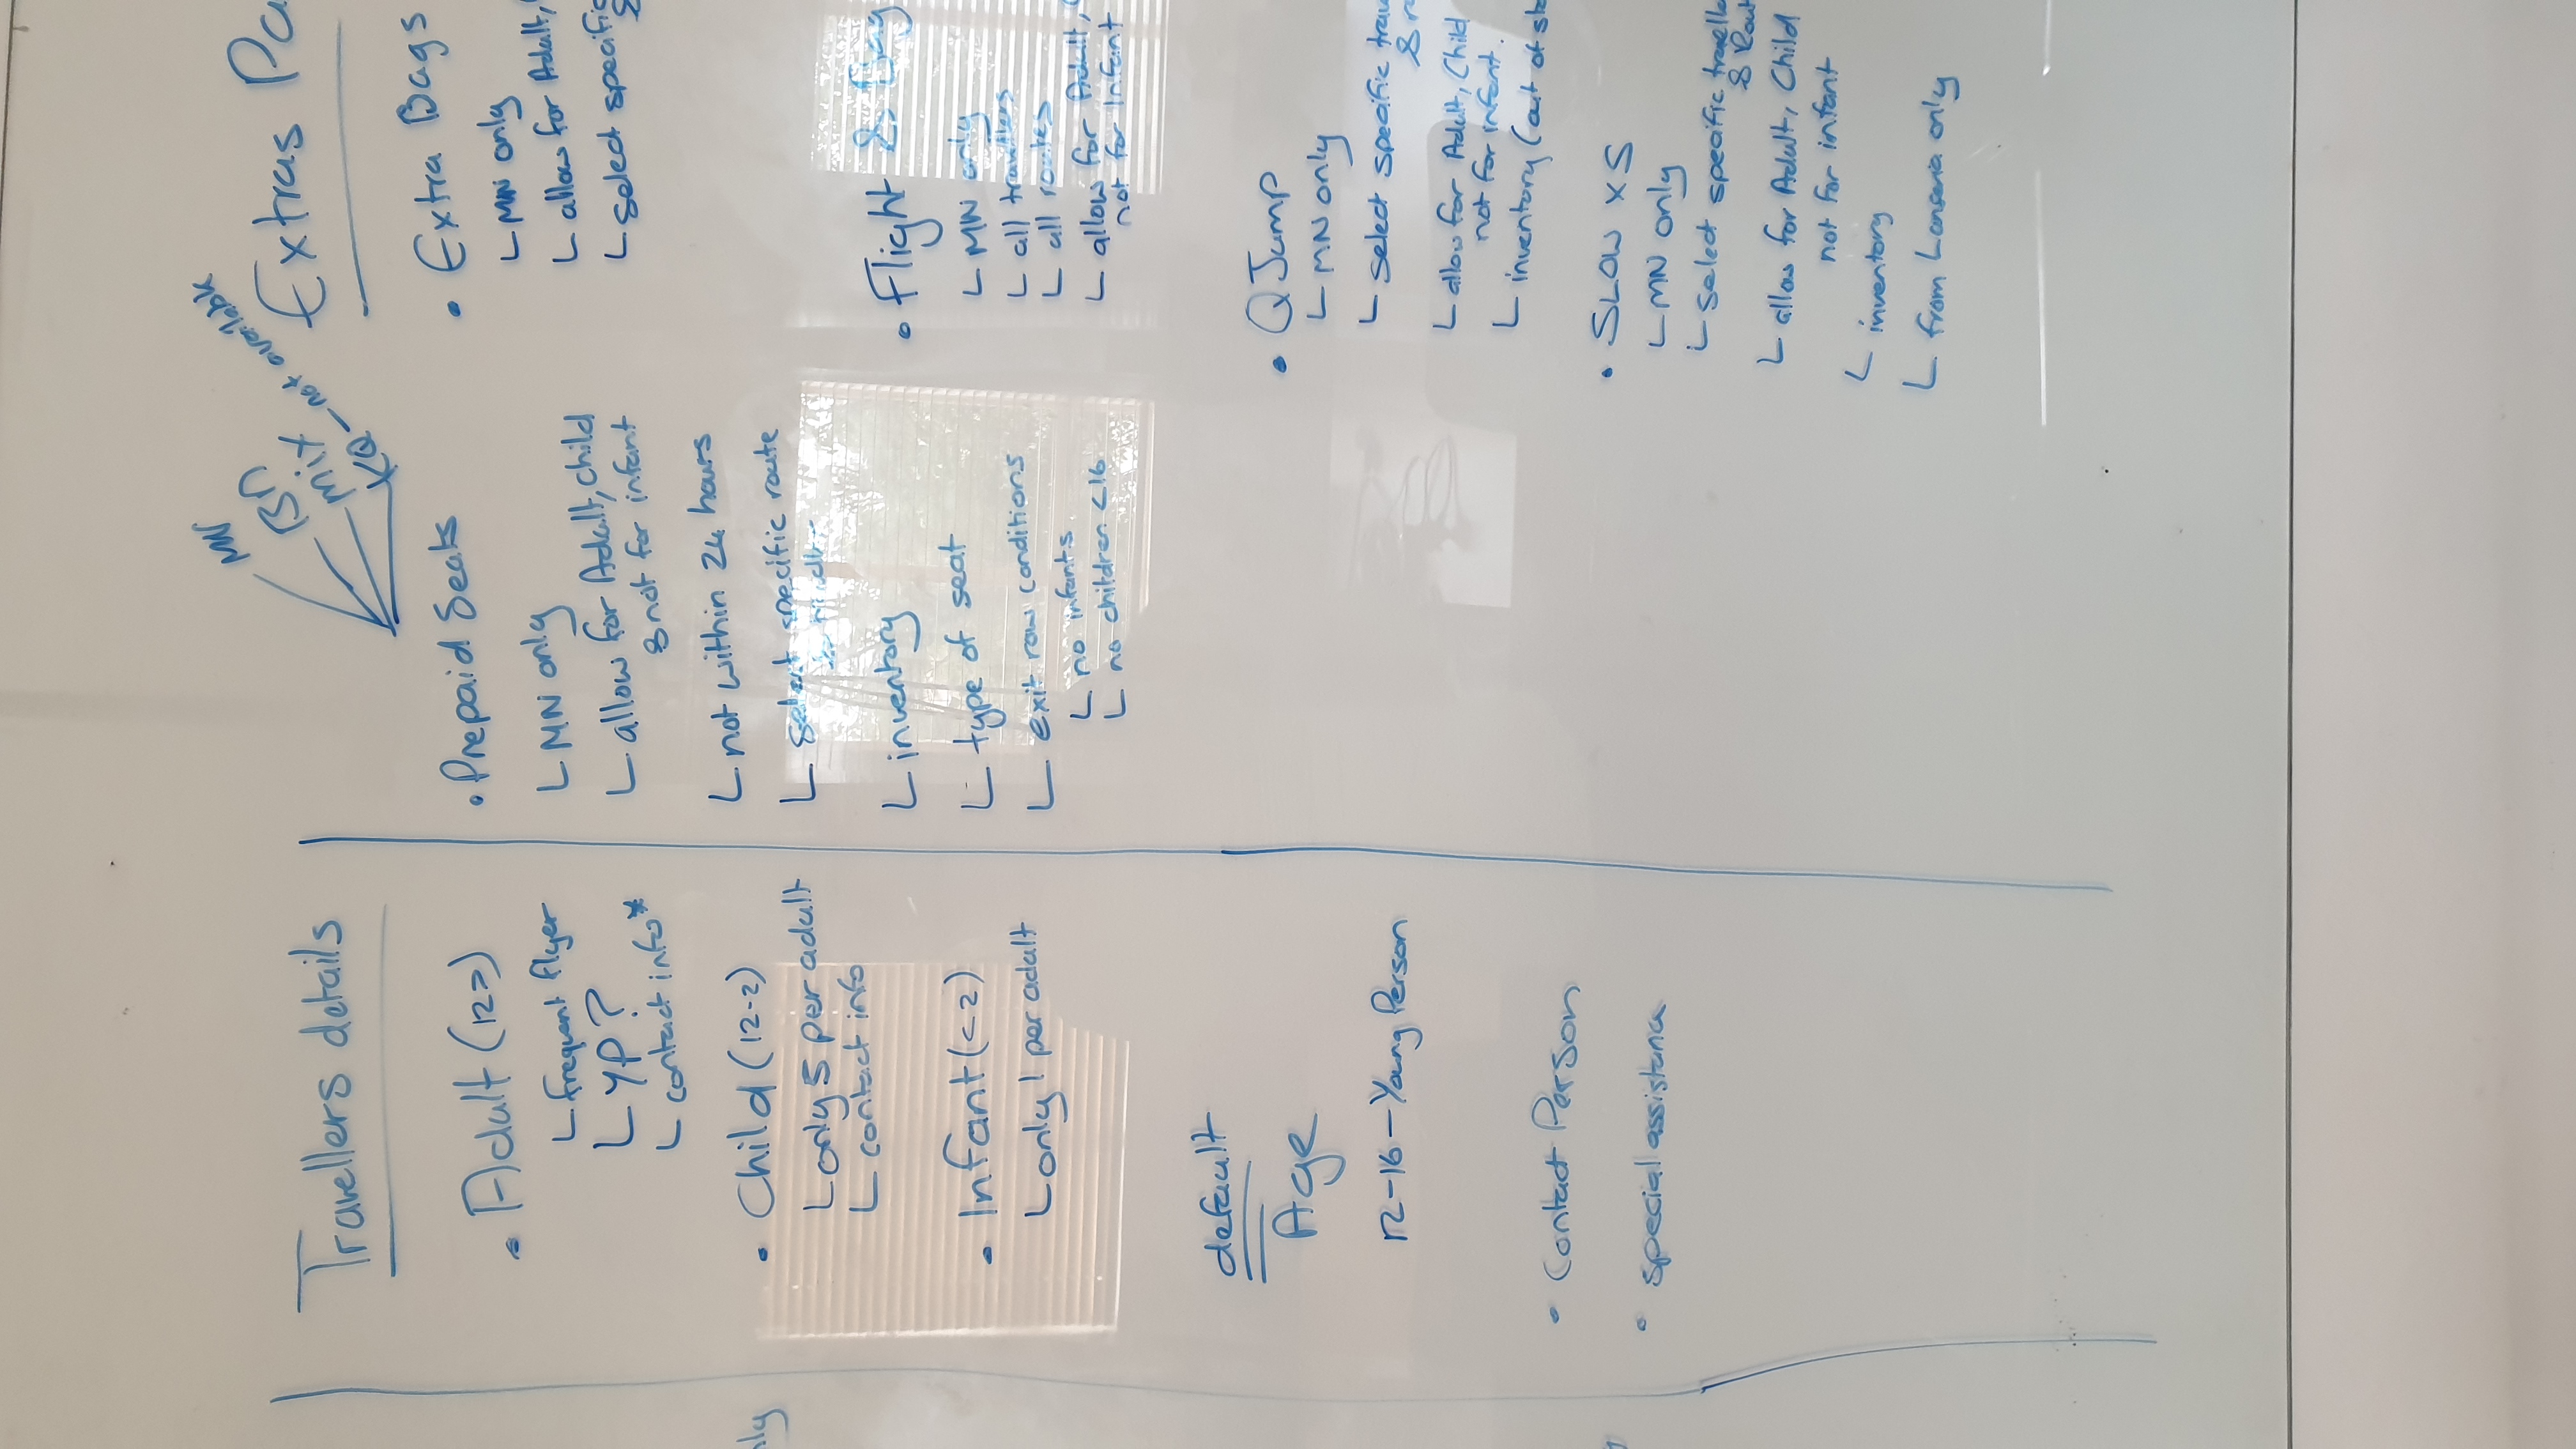 Travellers details
• Adult (12>)
└ frequent flyer
└ YP?
└ contact info*
• Child (12-2)
└ only 5 per adult
└ contact info
• Infant (<2)
└ only 1 per adult
default
Age
12-16 – Young Person
• Contact Person
• Special assistance
MN
BA
Mix
KQ – not available
Extras Pa
• Prepaid Seats
└ MN only
└ allow for Adult, Child
& not for infant
└ not within 24 hours
└ select specific route
└ inventory
└ type of seat
└ exit row conditions
└ no infants
└ no children <16
• Extra Bags
└ MN only
└ allow for Adult,
└ select specific
&
• Flight &
└ MN only
└ all travellers
└ all routes
└ allow for Adult,
not for Infant
• Q Jump
└ MN only
└ select specific
&
└ allow for Adult, Child
not for infant.
└ inventory (out of
• SLOW XS
└ MN only
└ select specific
& Rou
└ allow for Adult, Child
not for infant
└ inventory
└ from Lanseria only
nly